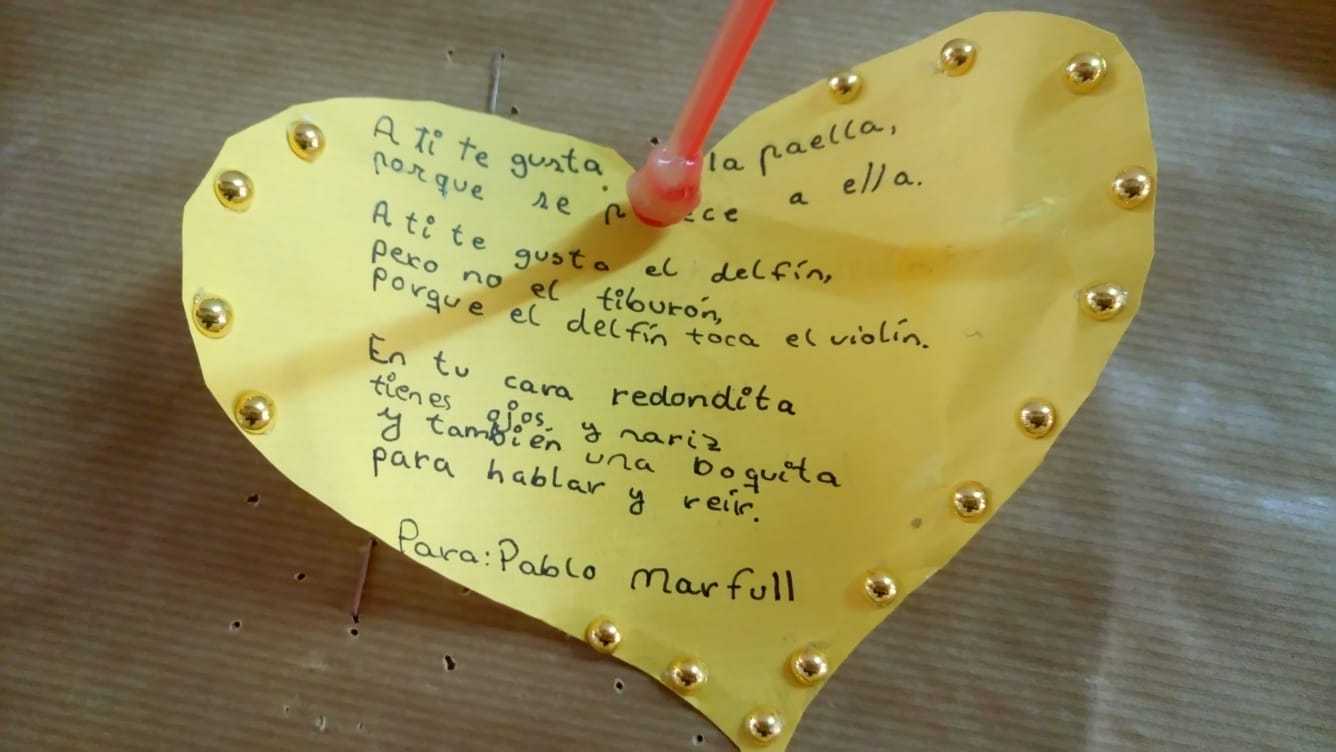 A ti te gusta la paella,
porque se parece a ella.
A ti te gusta el delfín,
pero no el tiburón,
porque el delfín toca el violín.
En tu cara redondita
tienes ojos, y nariz
y también una boquita
para hablar y reír.
Para: Pablo Marfull